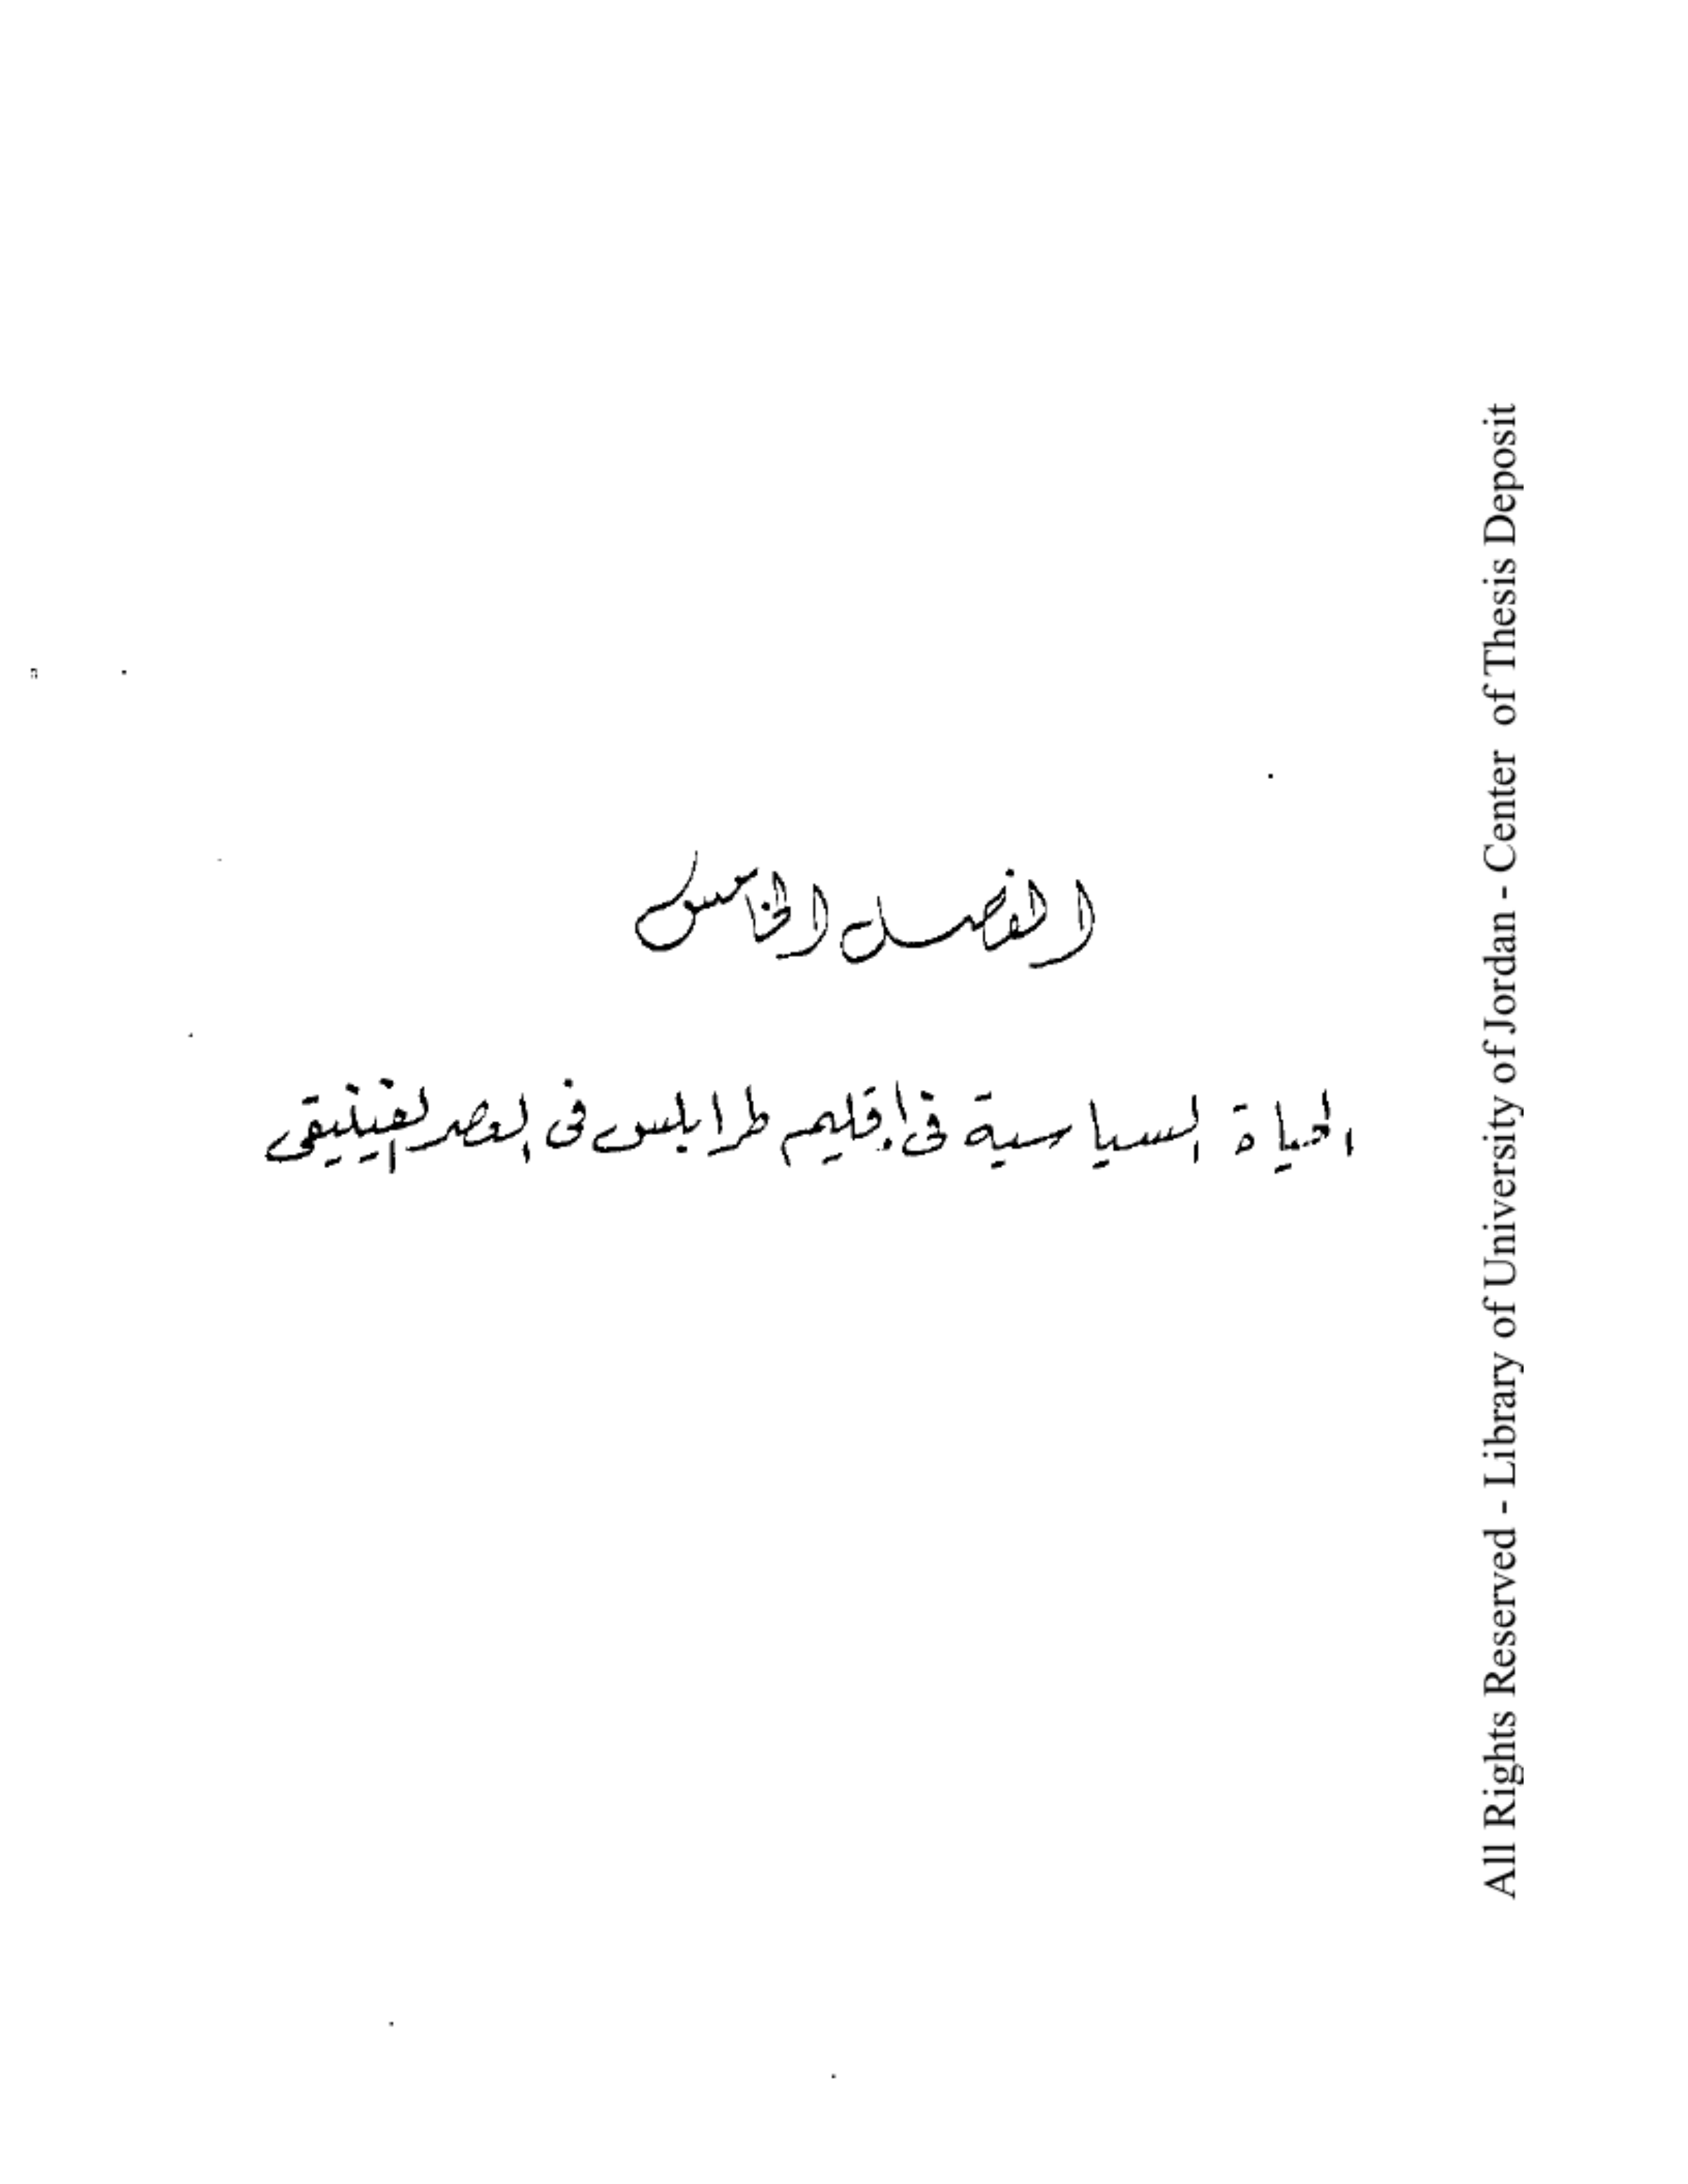 الفصل الخامس
الحياة السياسية في إقليم طرابلس في العصر الفينيقي
All Rights Reserved - Library of University of Jordan - Center of Thesis Deposit